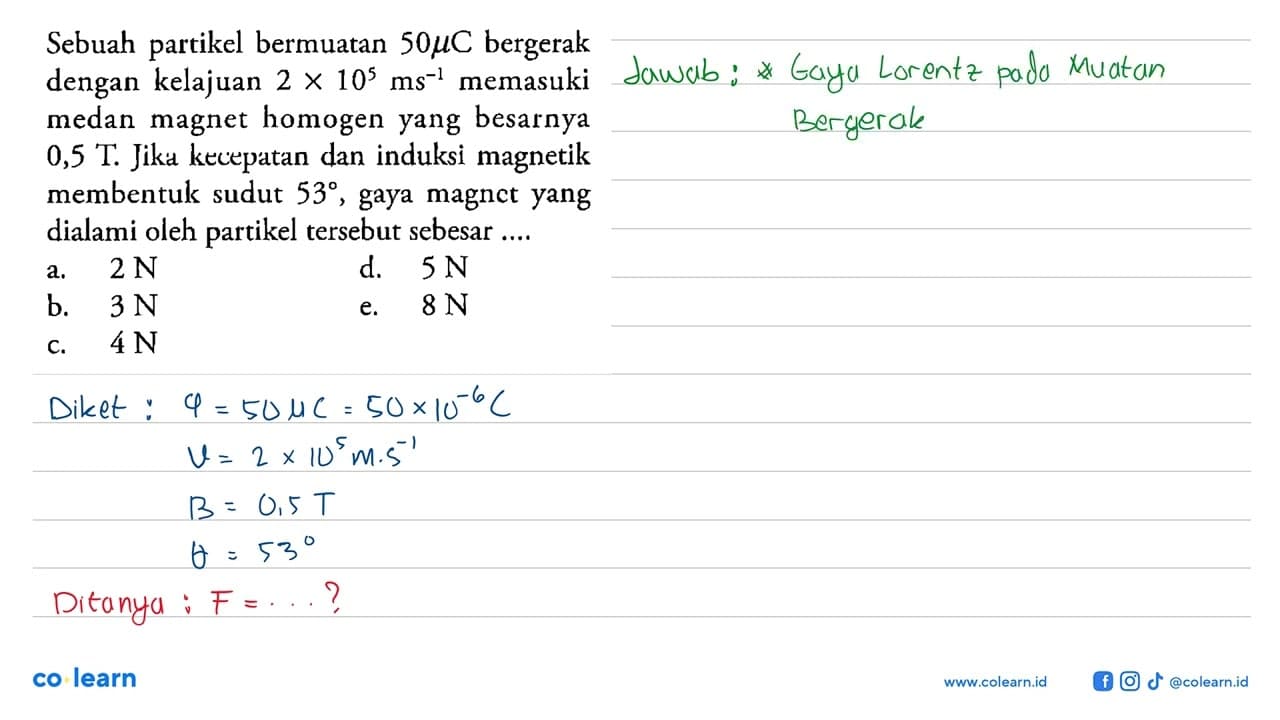 Sebuah partikel bermuatan 50μC bergerak
dengan kelajuan 2 × 10⁵ ms⁻¹ memasuki
medan magnet homogen yang besarnya
0,5 T. Jika kecepatan dan induksi magnetik
membentuk sudut 53°, gaya magnet yang
dialami oleh partikel tersebut sebesar ....
a. 2 N d. 5 N
b. 3 N e. 8 N
c. 4 N
Jawab : * Gaya Lorentz pada Muatan
Bergerak
Diket : q = 50 μC = 50 × 10⁻⁶ C
v = 2 × 10⁵ m.s⁻¹
B = 0,5 T
θ = 53°
Ditanya : F = .... ?
co learn
www.colearn.id @colearn.id